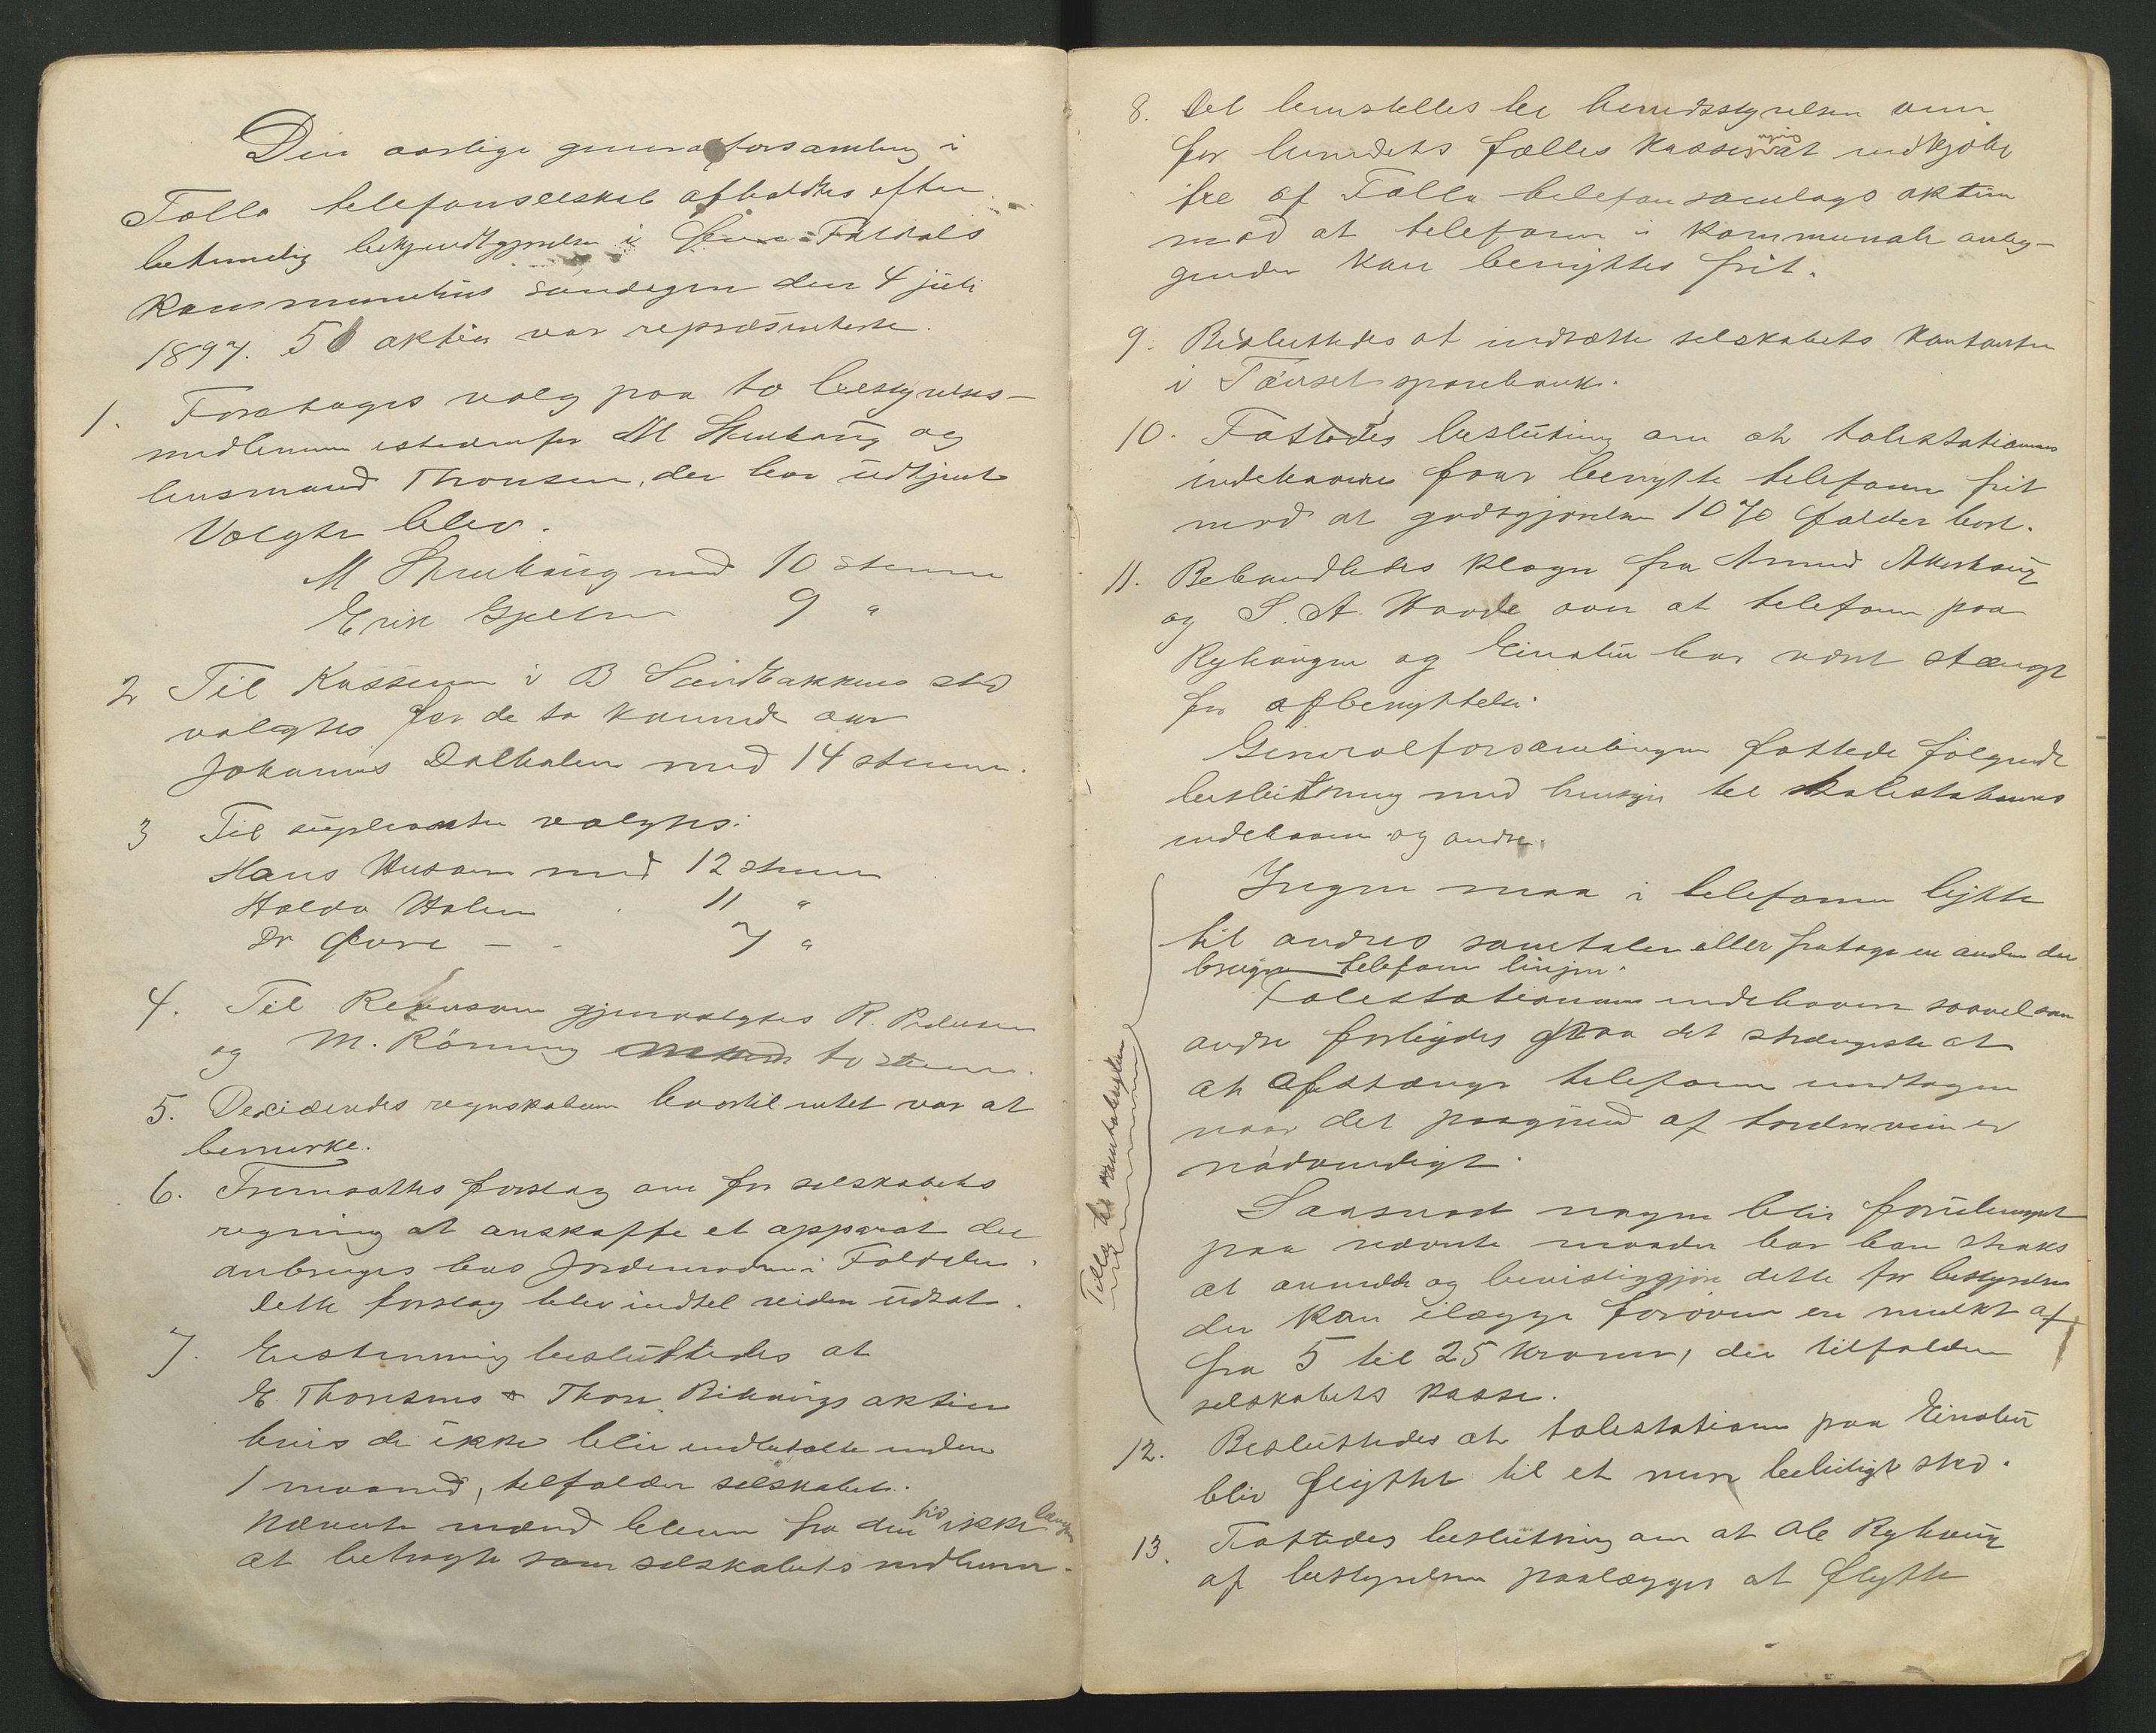 Den aarlige generalforsamling i
Folla telefonselskab afholdtes efter
betimelig bekjendtgjørelse i Foldals
Kommunehus søndagen den 4 juli
1897. 50 aktier var repræsenterte.
1. Foretoges valg paa to bestyrelses-
medlemmer istedenfor M Streitkoug og
lensmand Thonsen, der har udtjent
Valgte blev.
M med 10 stemmer
Erik Gjelten 9 "
2 Til Kasserer i B Sandbakkens sted
valgtes for de to kommende aar
Johannes Dalhalen med 14 stemmer.
3 Til suplianter valgtes:
Hans Husom med 12 stemmer
Halvor Holen 11 "
Dr Øvre - - 7 "
4. Til Revisorer gjenvalgtes R. Pedersen
og M. Rönning to stemmer.
5. Decideredes regnskabern hvortil intet var at
bemerke.
6. Fremsattes forslag om for selskabets
regning at anskaffe et apparat der
anbringes hos Jordemoderen i Foldalen.
Dette forslag blev indtil videre udsat.
7. Enstemmig besluttedes at
E. Thonsens & Thore aktier
hvis de ikke blir indbetalte inden
1 maaned, tilfalder selskabet.
Nævnte mænd bliver fra den tid ikke længer
at betragte som selskabets medlemmer.
8. Det henstilles til herredsstyrelsen om
for herredets fælles kasses regning at indkjøbe
fire af Folla telefonsamlags aktier
mod at telefonen i kommunale anlig-
gender kan benyttes frit.
9. Besluttedes at indsætte selskabets kontanter
i Tönset sparebank.
10. Fattedes beslutning om at talestationernes
indehavere faar benytte telefonen frit
mod at godtgjørelsen 10% falder bort.
11. Behandledes klager fra Amund
og S. A. over at telefonen paa
Ryhougen og Einabu har været stængt
for afbenyttelse.
Generalforsamlingen fattede følgende
beslutning med hensyn til talestationens
indehaver og andre.
Ingen maa i telefonen lytte
til andres samtaler eller fratage en anden der
bruger telefonen linjen.
Talestationernes indehavere saavel som
andre forbydes paa det strengeste at
at afstænge telefonen undtagen
naar det paagrund af tordenveir er
nödvendigt.
Saasnart nogen blir forulempet
paa nævnte maader bør han straks
at anmelde og bevisliggjøre dette for bestyrelsen
der kan ilægge forøveren en mulkt af
fra 5 til 25 kroner, der tilfalder
selskabets kasse.
Tillæg til
12. Besluttedes at talestationen paa Einabu
blir flyttet til et mere beleiligt sted.
13. Fattedes beslutning om at Ole Ryhoug
af bestyrelsen paalægges at flytte